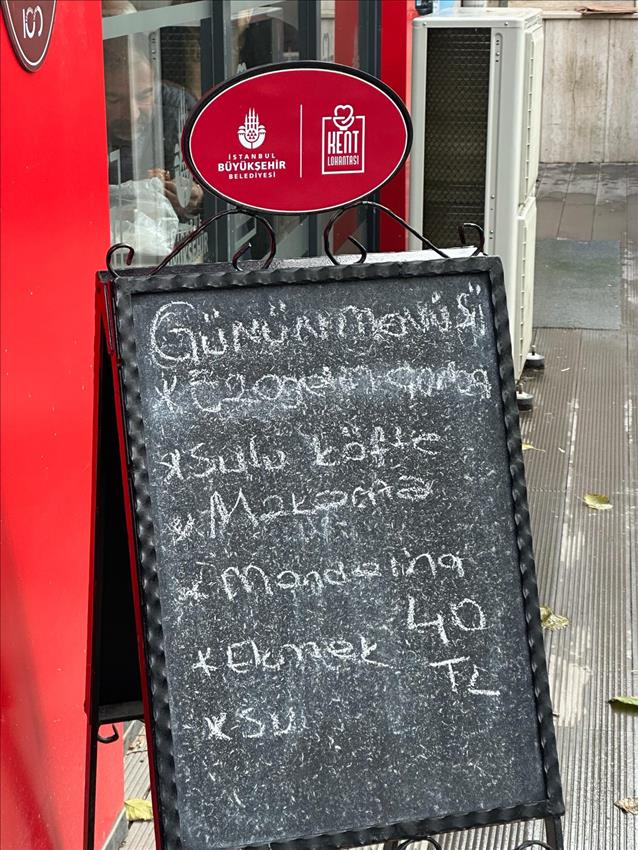 100
İSTANBUL
BÜYÜKŞEHİR
BELEDİYESİ
KENT
LOKANTASI
Günün menüsü
* Ezogelin çorba
* Sulu köfte
* Makarna
* Mandalina
* Ekmek
* Su
40
TL